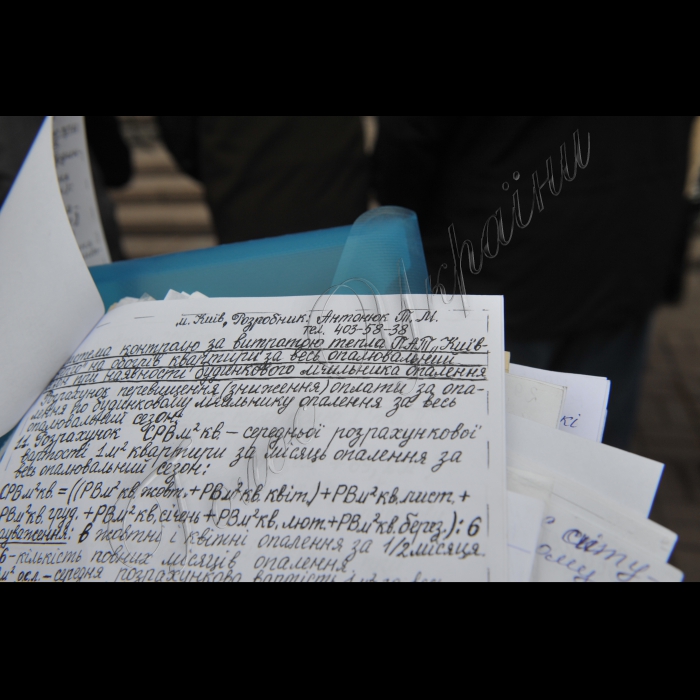 м. Київ, Розробник: Антонюк Т. М.
тел. 403-58-38
стема контролю за витратою тепла ПАТ „Київ-
на обігрів квартири за весь опалювальний
при наявності будинкового лічильника опалення
Розрахунок перевищення (зниження) оплати за опа-
лення по будинковому лічильнику опалення за весь
опалювальний сезон
Розрахунок СРВм²кв. – середньої розрахункової
вартості 1м² квартири за місяць опалення за
весь опалювальний сезон:
СРВм²кв = ((РВм²кв. жовт. + РВм²кв. квіт) + РВм²кв. лист. +
РВм²кв. груд. + РВм²кв. січень + РВм²кв. лют. + РВм²кв. берез.) : 6
в жовтні і квітні опалення за 1/2 місяця.
6 - кількість повних місяців опалення
м² - середня розрахункова вартість
кі
світу-
ому
України